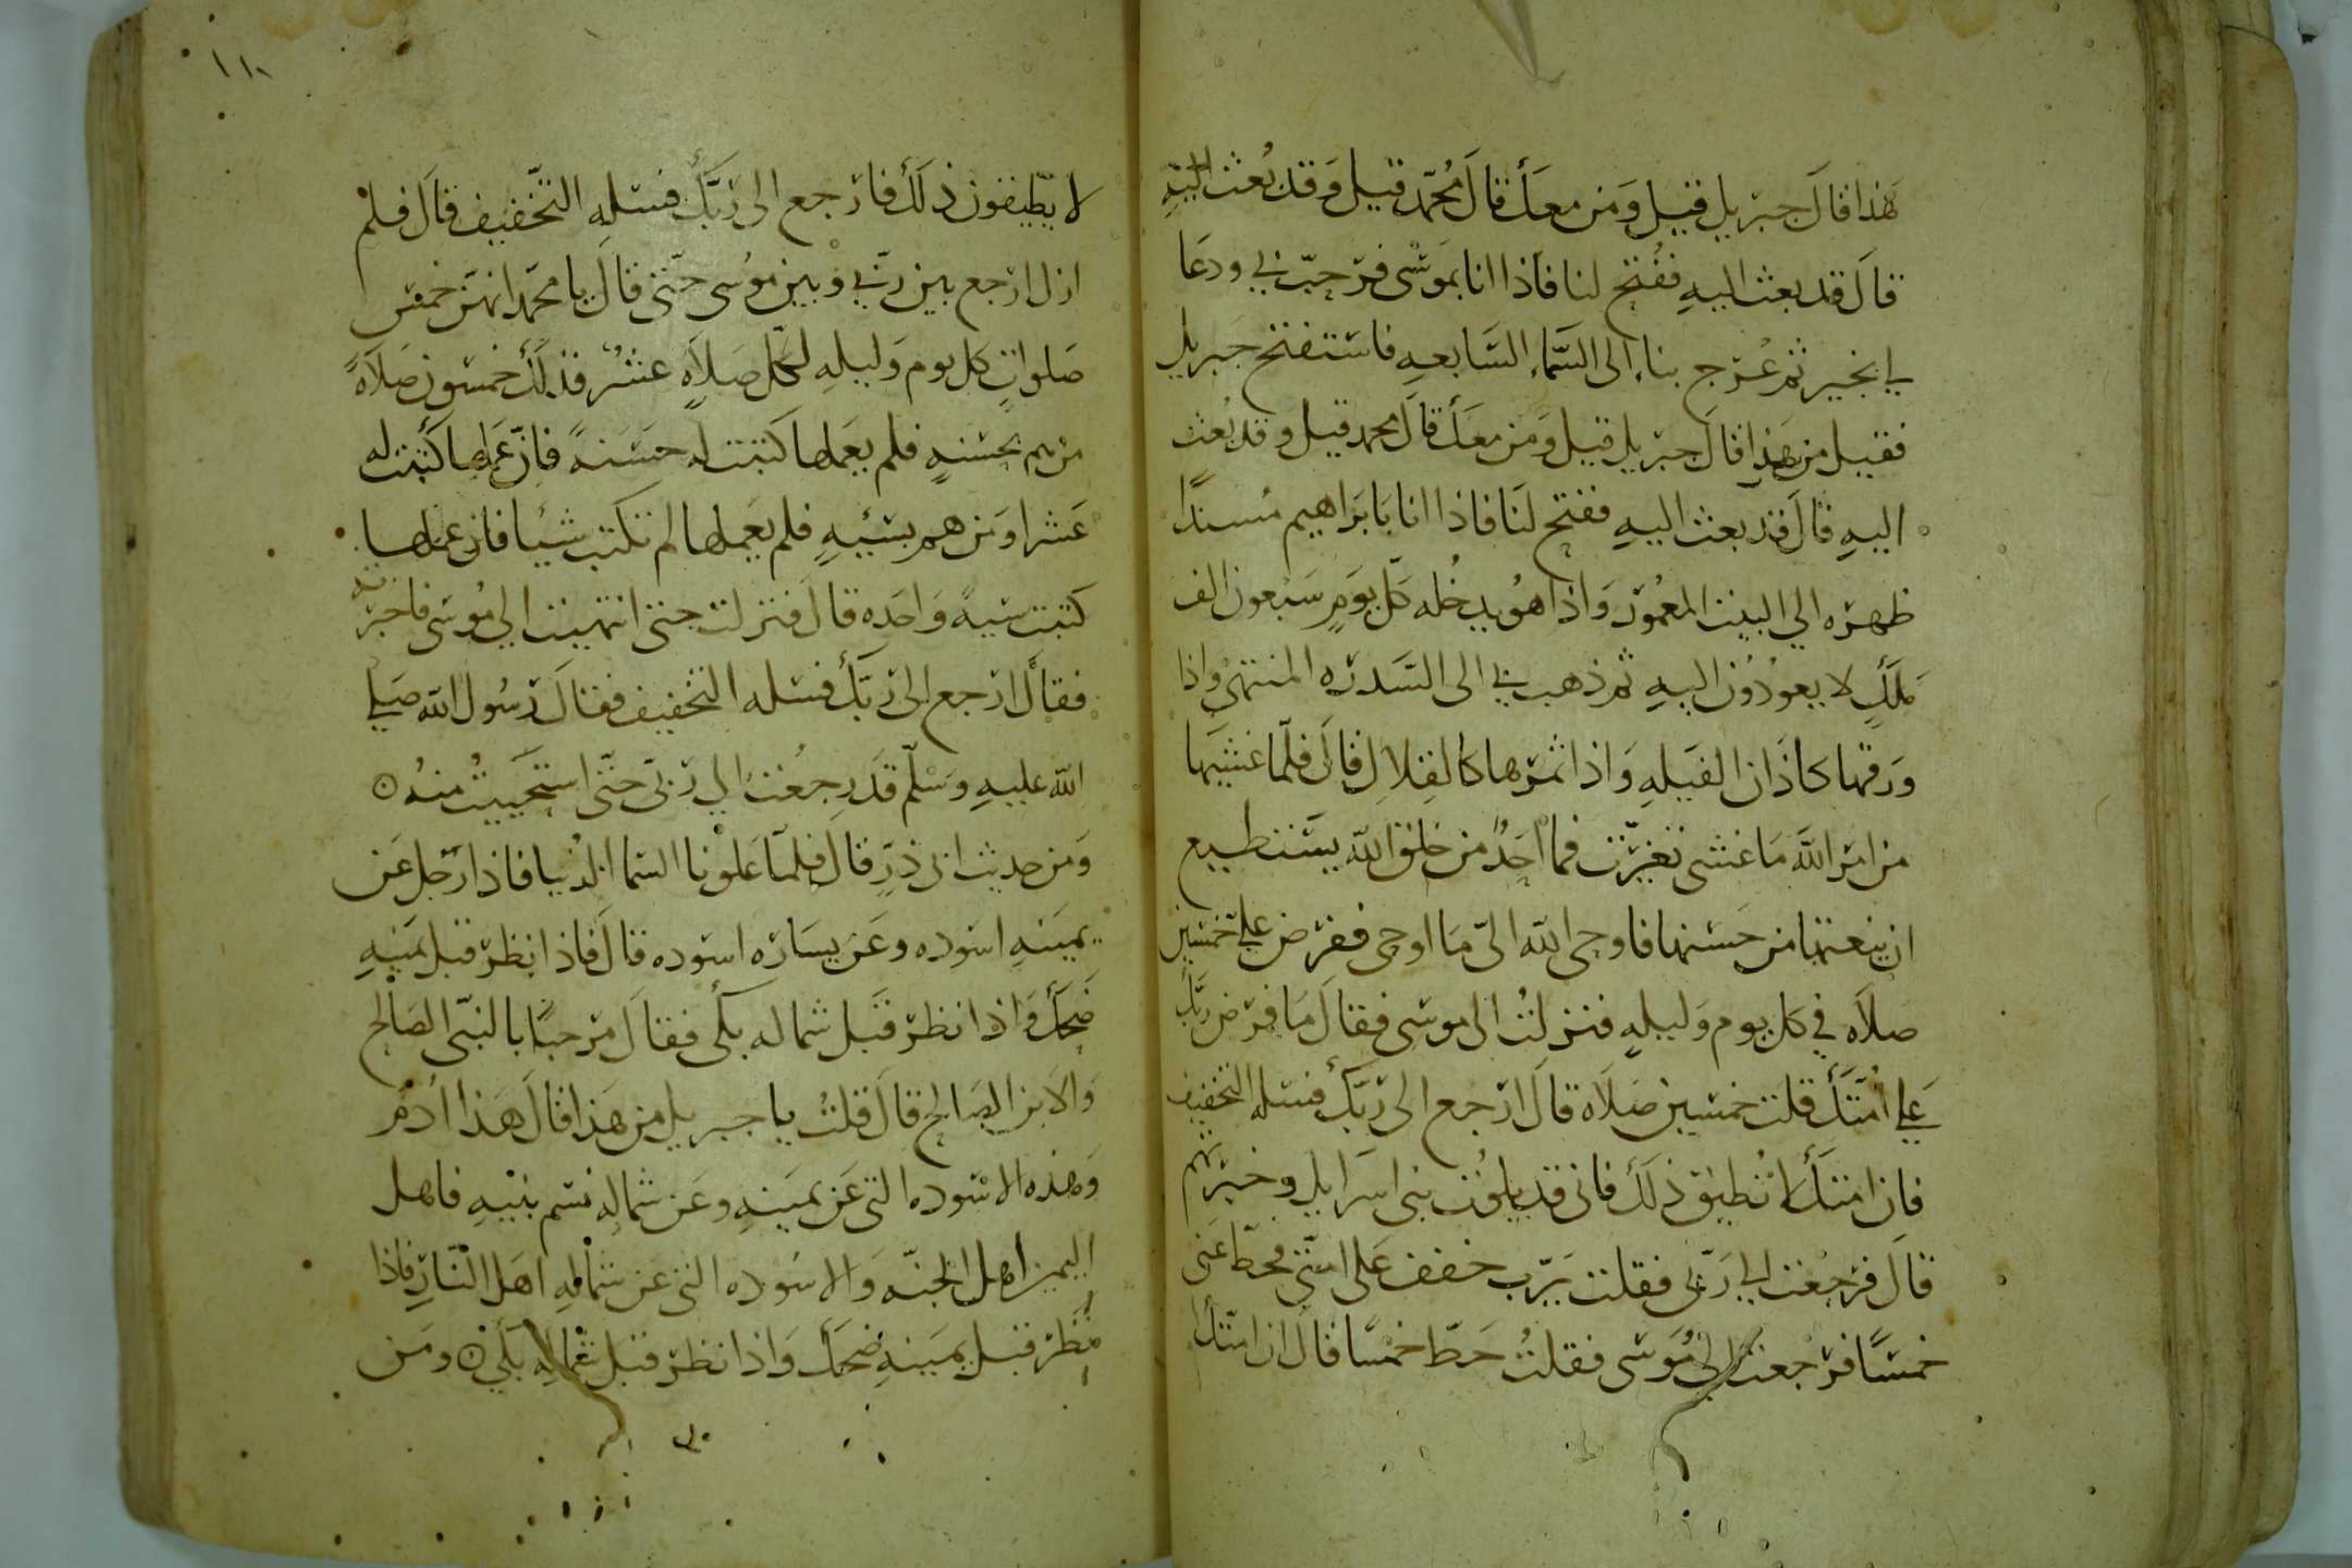 هذا قال جبريل قيل ومن معك قال محمد قيل وقد بعث اليه
قال قد بعث اليه ففتح لنا فاذا انا بموسى فرحب بي ودعا
لي بخير ثم عرج بنا إلى السماء السابعه فاستفتح جبريل
فقيل من هذا قال جبريل قيل ومن معك قال محمد قيل وقد بعث
اليه قال قد بعث اليه ففتح لنا فاذا انا بابراهيم مسندًا
ظهره الي البيت المعمور واذا هو يدخله كل يوم سبعون الف
ملك لا يعودون اليه ثم ذهب بي الى السدره المنتهى واذا
ورقها كاذان الفيله واذا ثمرها كالقلال قال فلما غشيها
من امر الله ما غشى تغيرت فما احد من خلق الله يستطيع
ان ينعتها من حسنها فاوحى الله الىّ ما اوحى ففرض علي خمسين
صلاه في كل يوم وليله فنزلت الى موسى فقال ما فرض ربك
علي امتك قلت خمسين صلاه قال ارجع الى ربك فسله التخفيف
فان امتك لا تطيق ذلك فانى قد بلوت بنى اسرايل وخبرتهم
قال فرجعت الي ربى فقلت يرب خفف على امتى فحط عنى
خمسًا فرجعت الى موسى فقلت حط خمسًا قال ان امتك
١١٠
لا يطيقون ذلك فارجع الى ربك فسله التخفيف قال فلم
ازل ارجع بين ربي وبين موسى حتى قال يا محمد انهن خمس
صلوات كل يوم وليله لكل صلاه عشر فذلك خمسون صلاةً
من هم بحسنه فلم يعملها كتبت له حسنةً فان عملها كتبت له
عشرا ومن هم بسئيه فلم يعملها لم تكتب شيا فان عملها
كتبت سيةً واحده قال فنزلت حتى انتهيت الي موسى فاخبرته
فقال ارجع الى ربك فسله التخفيف فقال رسول الله صلي
الله عليه وسلم قد رجعت الي ربى حتى استحييت منه
ومن حديث ابى ذر قال فلما علونا السما الدنيا فاذا رجل عن
يمينه اسوده وعن يساره اسوده قال فاذا نظر قبل يمينه
ضحك واذا نظر قبل شماله بكى فقال مرحبًا بالنبى الصالح
والابن الصالح قال قلت يا جبريل من هذا قال هذا ادم
وهذه الاسوده التى عن يمينه وعن شماله نسم بنيه فاهل
اليمين اهل الجنه والاسوده التى عن شماله اهل النار فاذا
نظر قبل يمينه ضحك واذا نظر قبل شماله بكى ومن